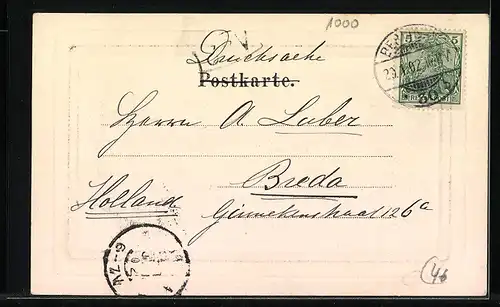 1000
Drucksache
Postkarte.
Herrn A. Luber
Breda
Holland
Ginnekenstraat 126a
5
46